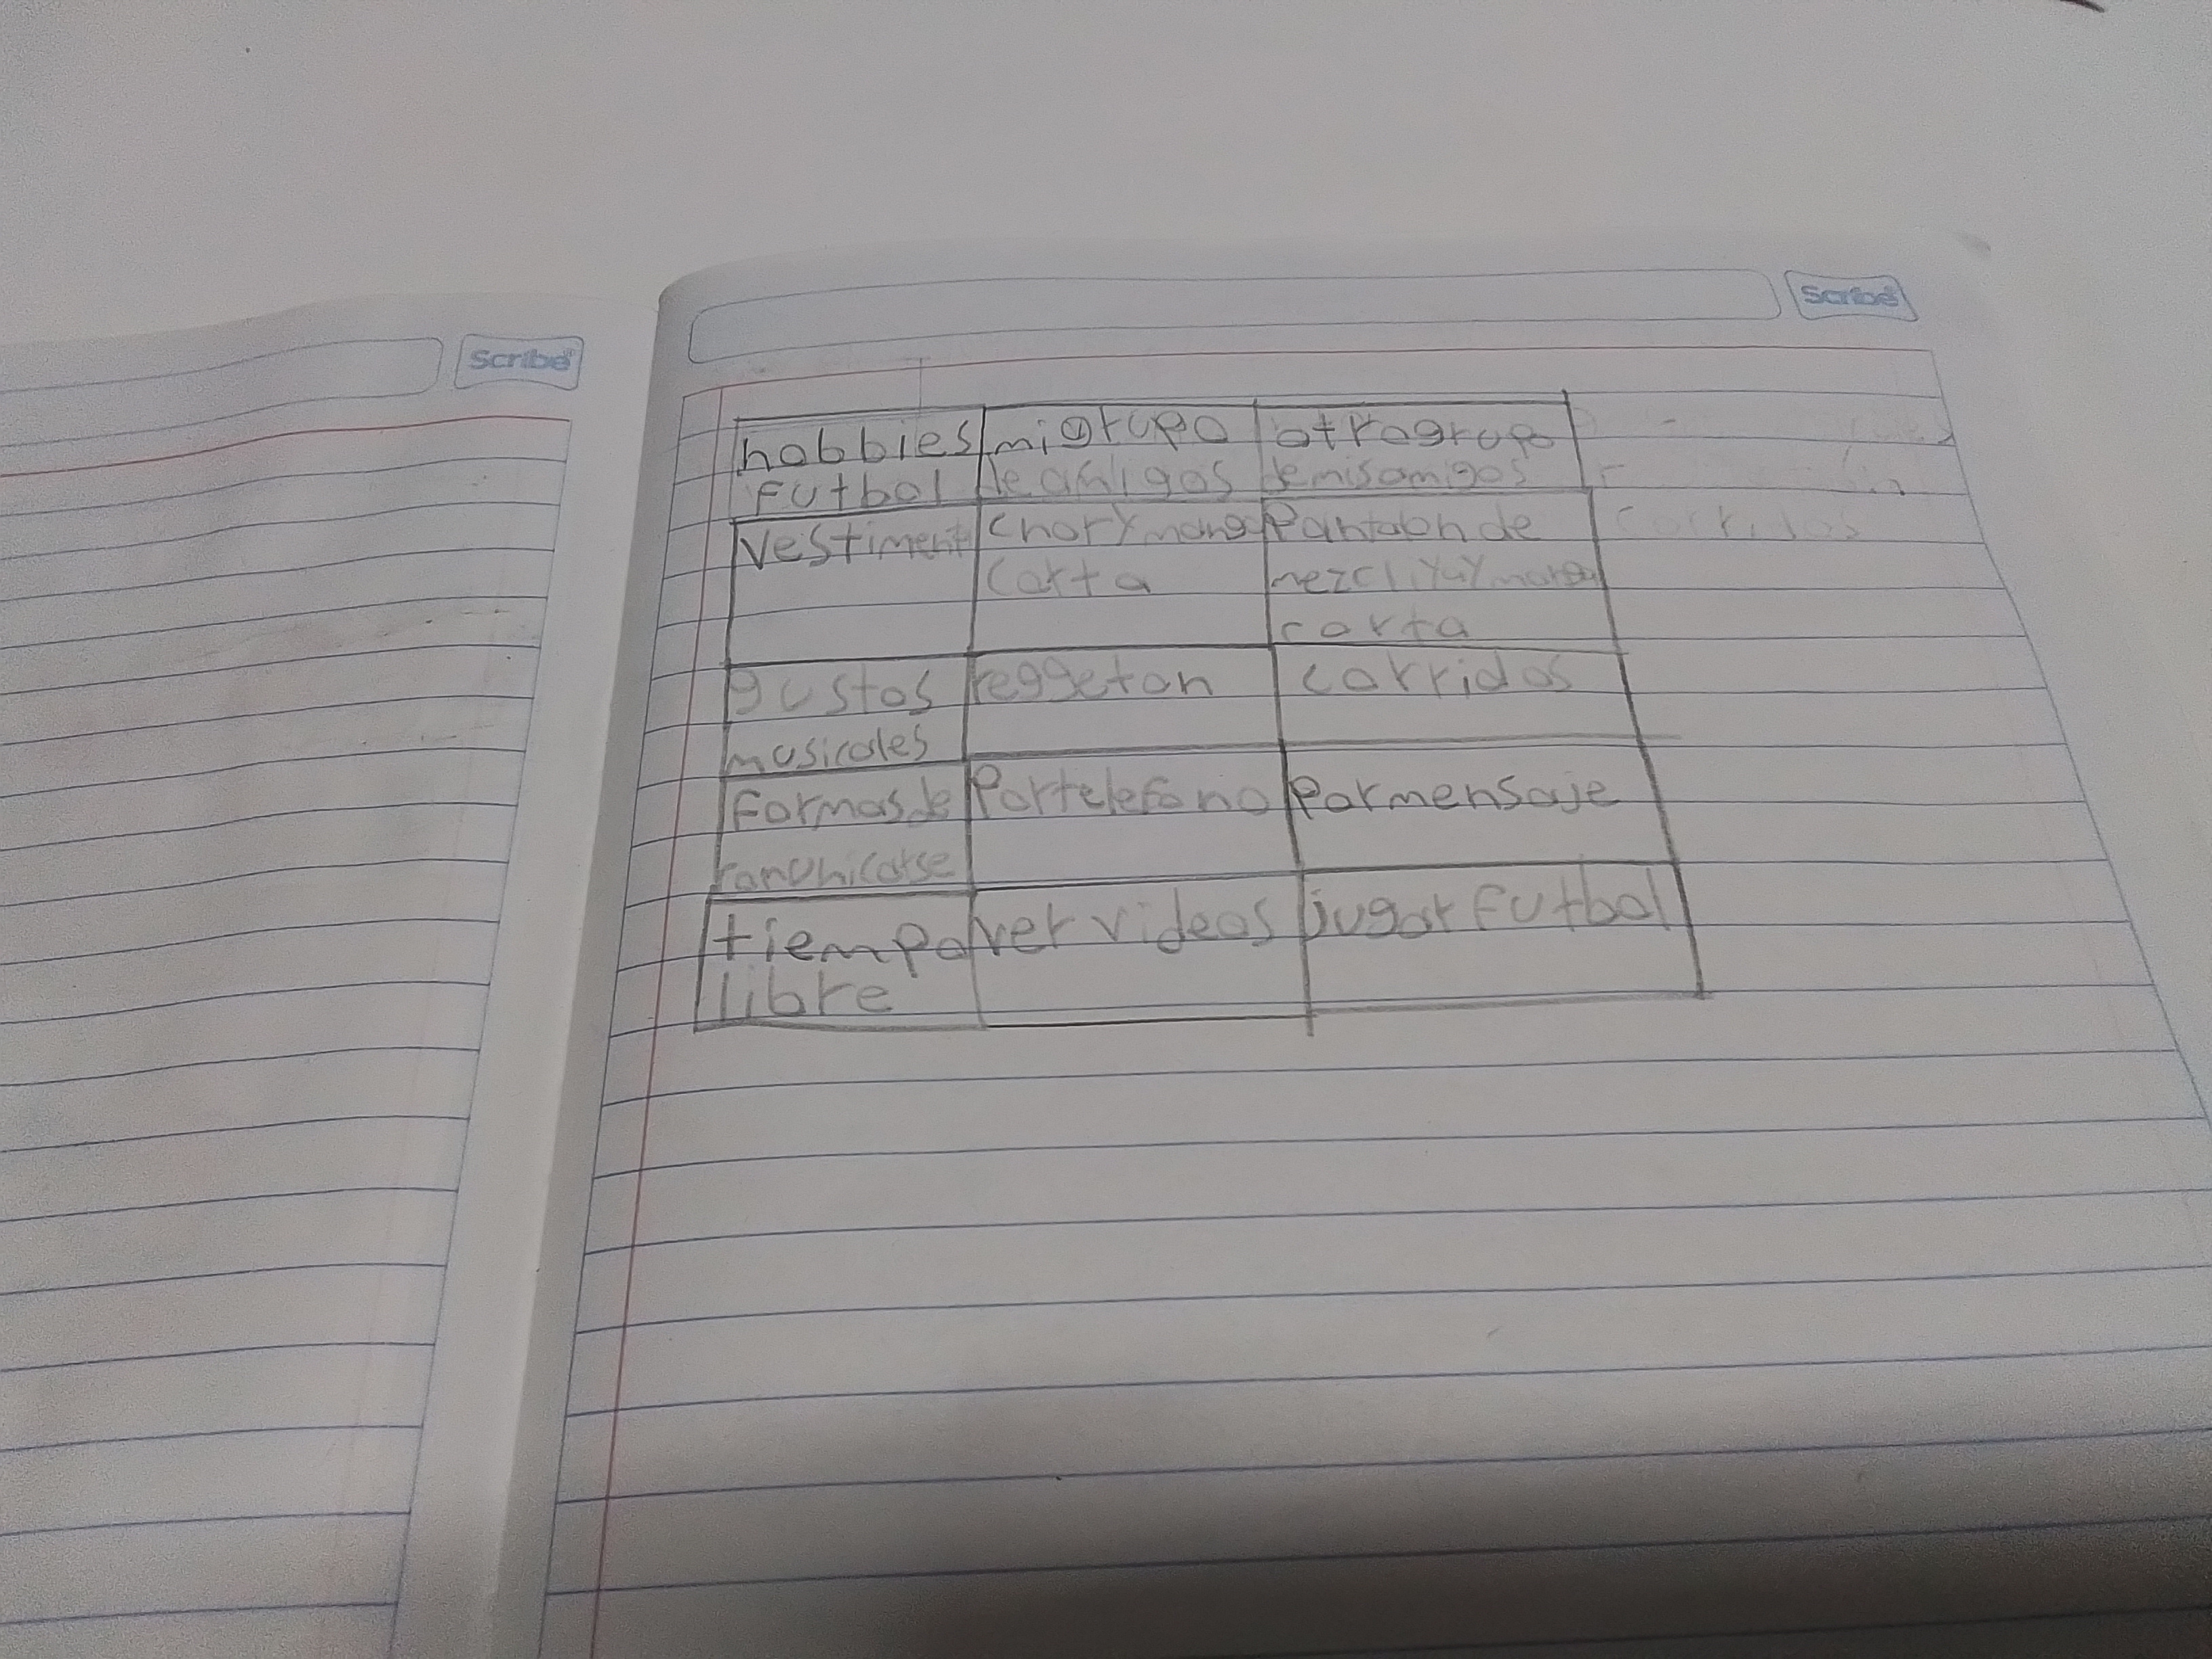 Scribe
Scribe
hobbies
futbol
mi grupo
de amigos
otro grupo
de mis amigos
vestiment
chor y manga
corta
Pantalon de
corta
corridos
gustos
musicales
reggeton
corridos
formas de
comunicarse
Por telefono
Por mensaje
tiempo
libre
ver videos
jugar futbol